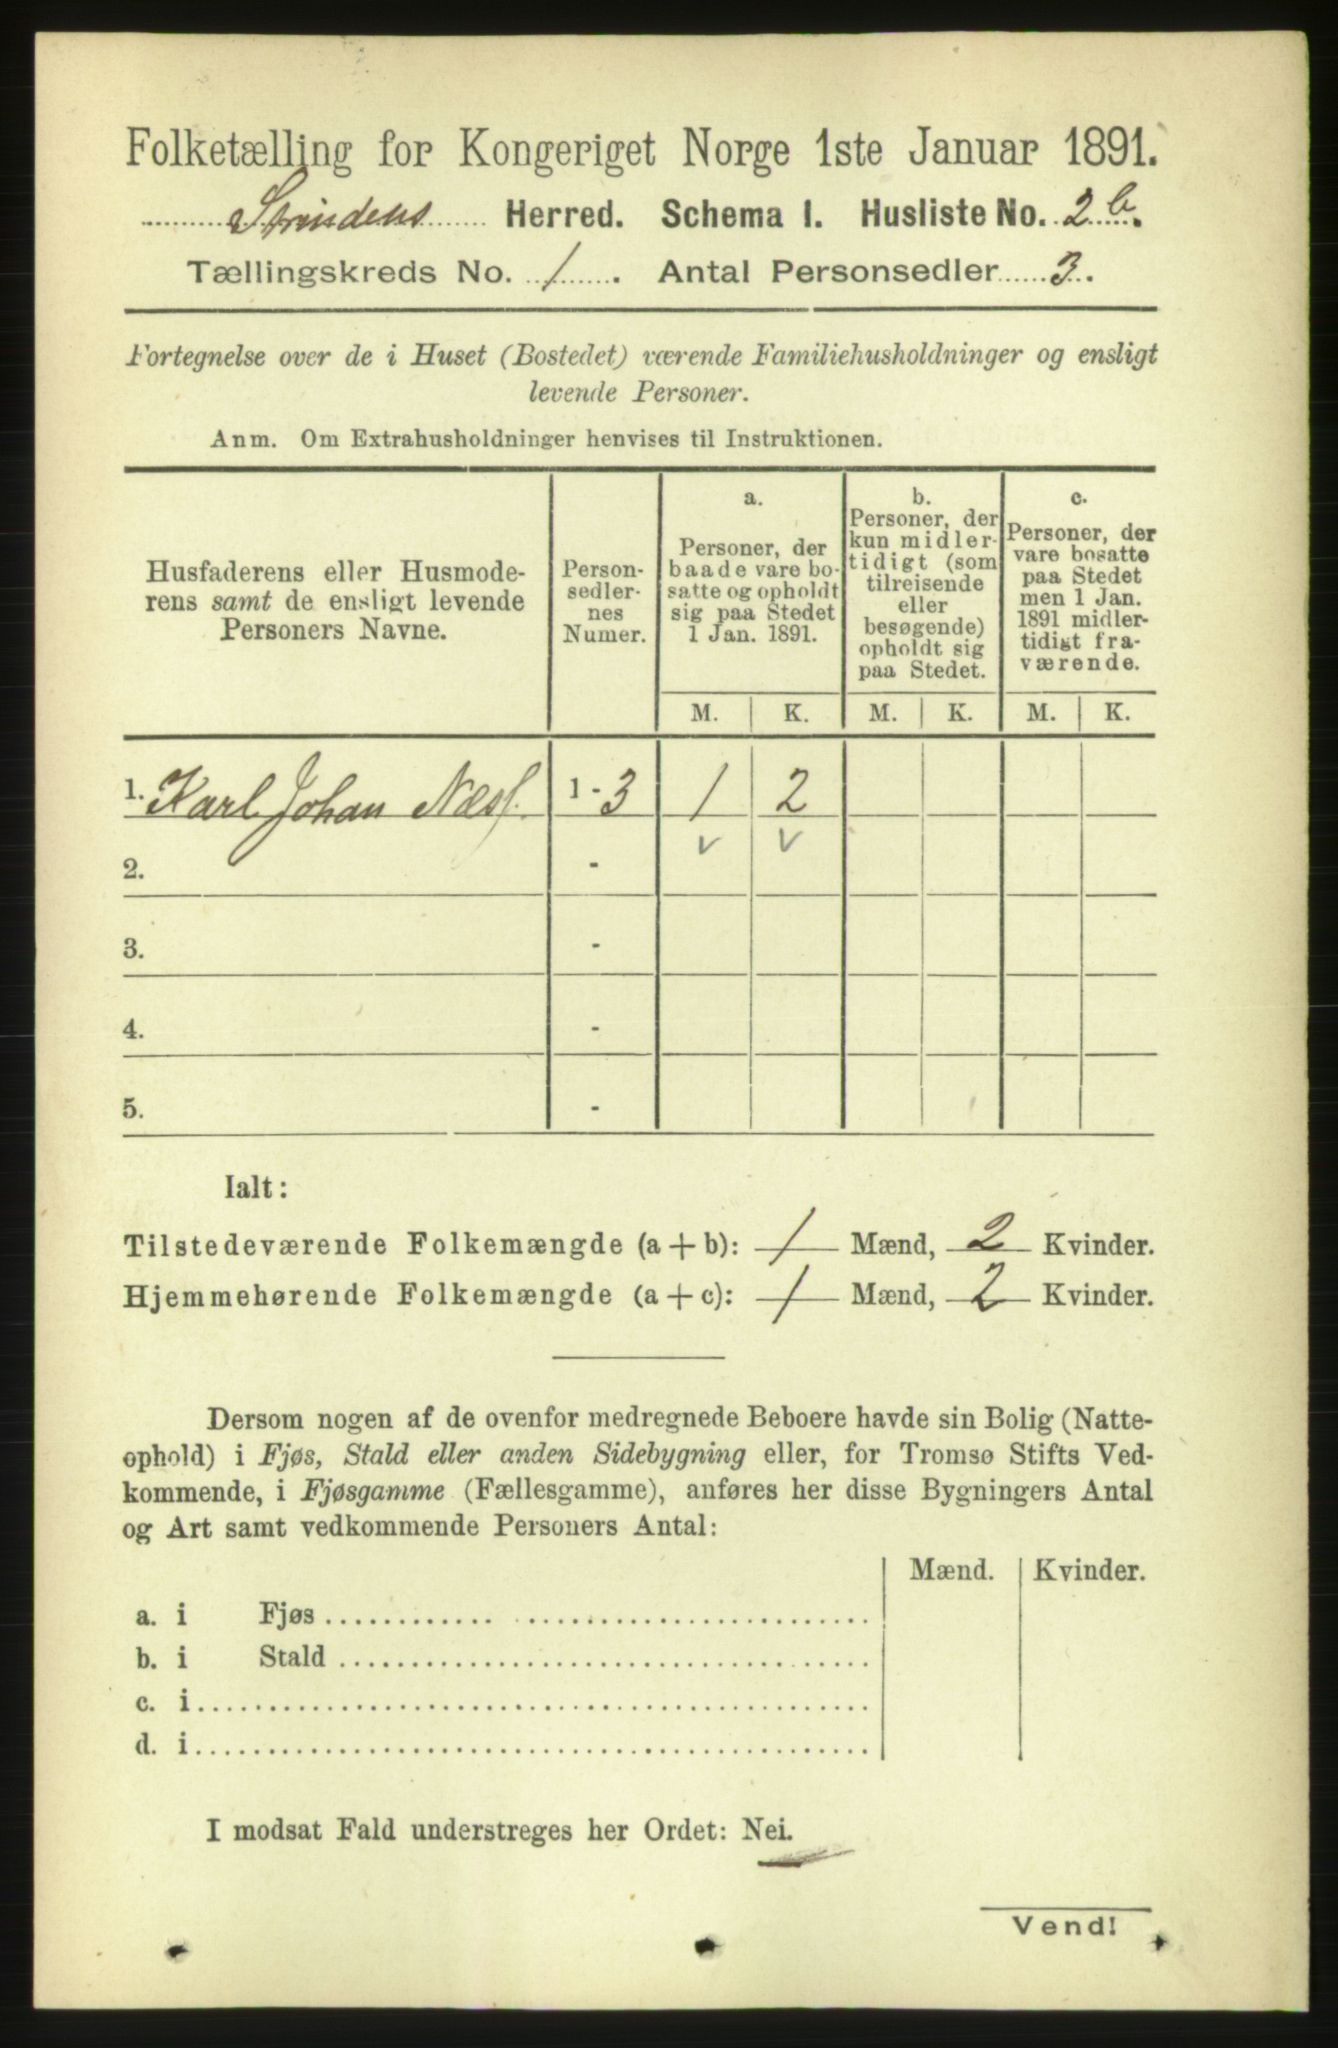 Folketælling for Kongeriget Norge 1ste Januar 1891.
Strindens Herred. Schema I. Husliste No. 2 b.
Tællingskreds No. 1. Antal Personsedler 3.
Fortegnelse over de i Huset (Bostedet) værende Familiehusholdninger og ensligt
levende Personer.
Anm. Om Extrahusholdninger henvises til Instruktionen.
Husfaderens eller Husmode-
rens samt de ensligt levende
Personers Navne.
Person-
sedler-
nes
Numer.
a.
Personer, der
baade vare bo-
satte og opholdt
sig paa Stedet
1 Jan. 1891.
b.
Personer, der
kun midler-
tidigt (som
tilreisende
eller
besøgende)
opholdt sig
paa Stedet.
c.
Personer, der
vare bosatte
paa Stedet
men 1 Jan.
1891 midler-
tidigt fra-
værende.
M. K. M. K. M. K.
1. Karl Johan Næss. 1 - 3 1 2
v v
2. -
3. -
4. -
5. -
Ialt:
Tilstedeværende Folkemængde (a + b): 1 Mænd, 2 Kvinder.
Hjemmehørende Folkemængde (a + c): 1 Mænd, 2 Kvinder.
Dersom nogen af de ovenfor medregnede Beboere havde sin Bolig (Natte-
ophold) i Fjøs, Stald eller anden Sidebygning eller, for Tromsø Stifts Ved-
kommende, i Fjøsgamme (Fællesgamme), anføres her disse Bygningers Antal
og Art samt vedkommende Personers Antal:
Mænd. Kvinder.
a. i Fjøs
b. i Stald
c. i
d. i
I modsat Fald understreges her Ordet: Nei.
Vend!